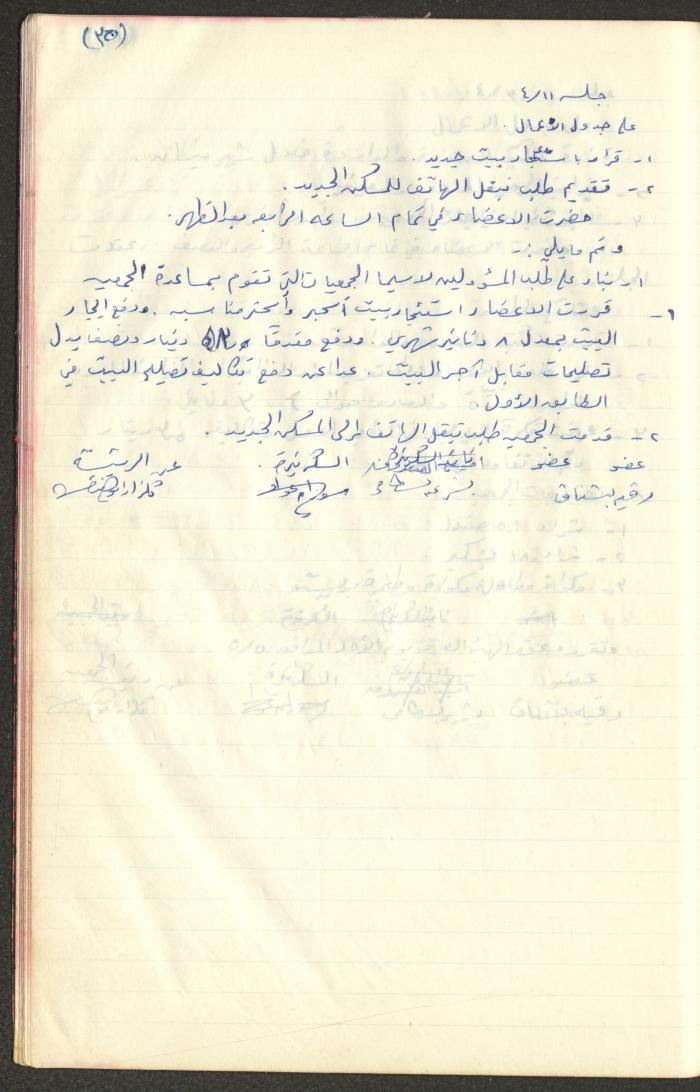 (٣٥)
جلسه ٤/١١
على جدول الاعمال .
١- قرار باستئجار بيت جديد .
٢- تقديم طلب نبقل الهاتف للمسكن الجديد .
حضرت الاعضاء في تمام الساعه الرابعه بعد الظهر .
وتم مايلي :-
١- بناء على طلب المسؤولين لاسيما الجمعيات التي تقوم بمساعدة الجمعيه
١- قررت الاعضاء استئجار بيت أكبر وأكثر مناسبه . ودفع ايجار
البيت بمعدل ٨ دنانير شهري . ودفع مقدمًا دينار ونصف بدل
تصليحات مقابل أجر البيت . عدا عن دفع تكاليف تصليح البيت في
الطابق الأول .
٢- قدمت الجمعيه طلب بنقل الهاتف الى المسكن الجديد .
عضو عضو امينة الصندوق السكرتيرة . عن الرئيسة
رقيه بشناق يسرى